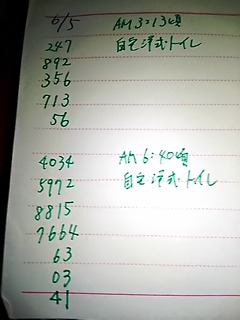 6/5 AM 3:13頃
247 自宅洋式トイレ
892
356
713
56
4034 AM 6:40頃
5972 自宅洋式トイレ
8815
7664
63
03
41